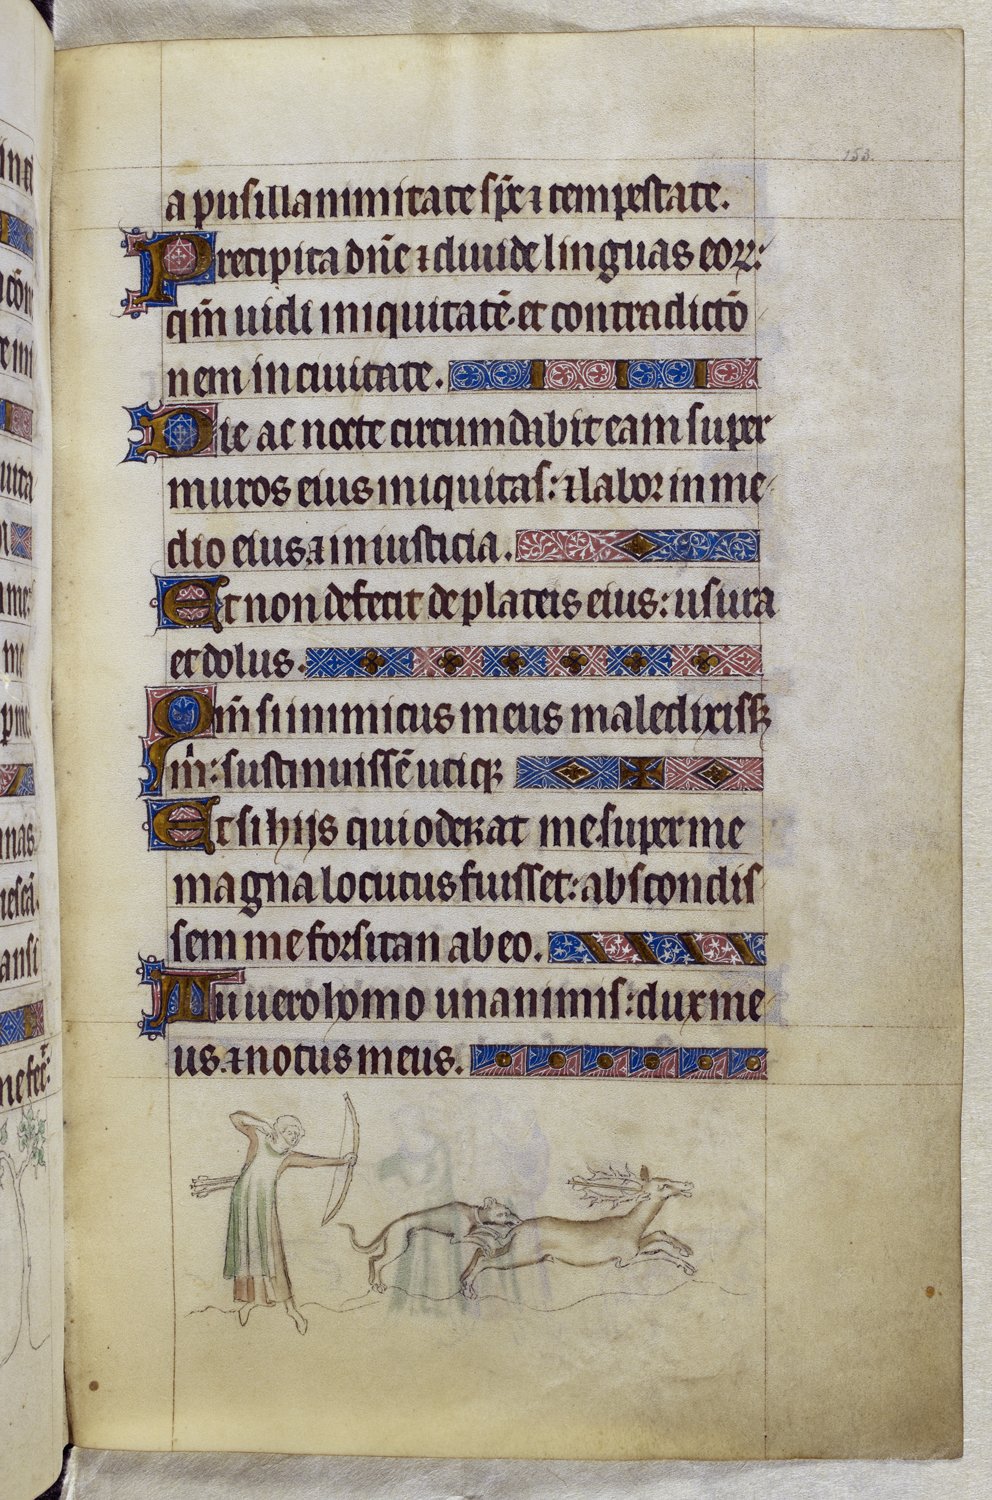 153.
a pusillanimitate sp̄c ⁊ tempestate.
Precipita dn̄e ⁊ diuide linguas eoꝝ:
qm̄ uidi iniquitatē. et contradictō
nem in ciuitate.
Die ac nocte circumdabit eam super
muros eius iniquitas: ⁊ labor in me
dio eius. ⁊ iniusticia.
Et non defecit de plateis eius: usura
et dolus.
Qm̄ si inimicus meus maledixiss;
m̓: sustinuissē utiqꝫ
Et si hijs qui oderat me. super me
magna locutus fuisset: abscondis
sem me forsitan ab eo.
Tu uero homo unanimis: dux me
us. ⁊ notus meus.